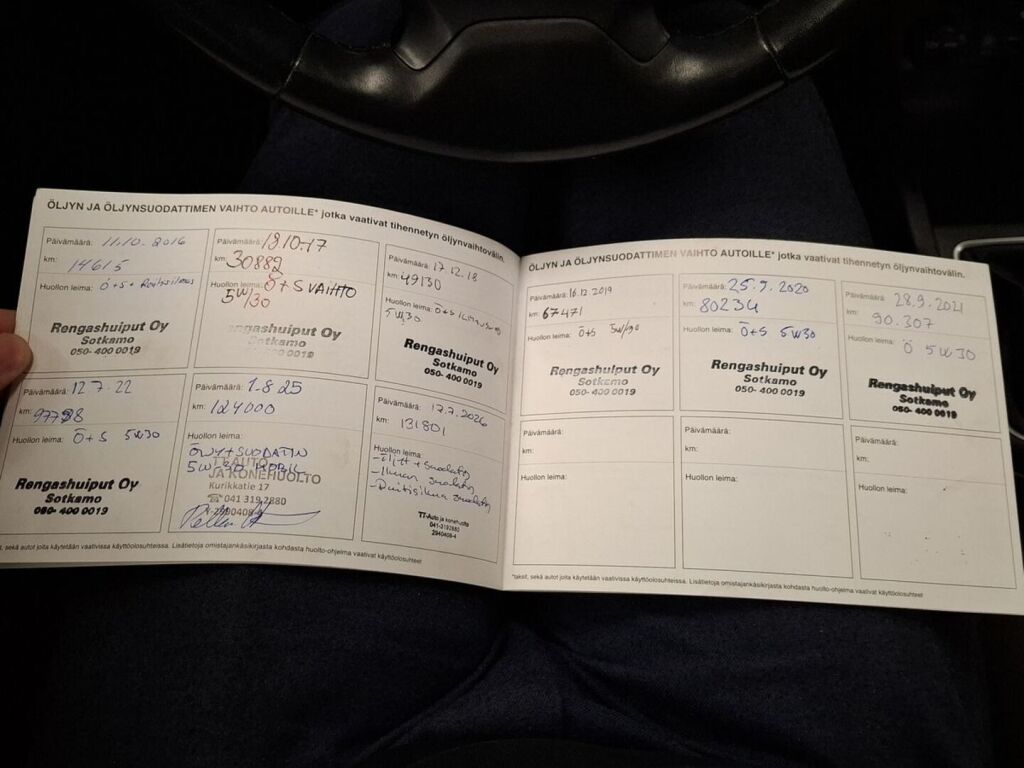 ÖLJYN JA ÖLJYNSUODATTIMEN VAIHTO AUTOILLE* jotka vaativat tihennetyn öljynvaihtovälin.
Päivämäärä: 11.10.2016
km: 14615
Huollon leima: Ö+S+ Raitisilma
Rengashuiput Oy
Sotkamo
050- 400 0019
Päivämäärä: 1310.17
km: 30882
Huollon leima: Ö+S VAIHTO
5W/30
Rengashuiput Oy
Sotkamo
050- 400 0019
Päivämäärä: 17.12.18
km: 49130
Huollon leima: Ö+S
5W30
Rengashuiput Oy
Sotkamo
050- 400 0019
Päivämäärä: 12.7.22
km:
Huollon leima: Ö+S 5W30
Rengashuiput Oy
Sotkamo
050- 400 0019
Päivämäärä: 1.8.25
km: 124000
Huollon leima:
ÖLJY+SUODATIN
5W-30 MOBIL
JA KONEHUOLTO
Kurikkatie 17
☎ 041 319 2880
Päivämäärä: 17.7.2026
km: 131801
Huollon leima:
-Öljyt + suodatin
-Ilman suodatin
-Raitisilma suodatin
TT-Auto ja konehuolto
041-3192880
2940408-4
, sekä autot joita käytetään vaativissa käyttöolosuhteissa. Lisätietoja omistajankäsikirjasta kohdasta huolto-ohjelma vaativat käyttöolosuhteet
ÖLJYN JA ÖLJYNSUODATTIMEN VAIHTO AUTOILLE* jotka vaativat tihennetyn öljynvaihtovälin.
Päivämäärä: 16.12.2019
km: 67471
Huollon leima: Ö+S 5W/30
Rengashuiput Oy
Sotkamo
050- 400 0019
Päivämäärä: 25.9.2020
km: 80234
Huollon leima: Ö+S 5W30
Rengashuiput Oy
Sotkamo
050- 400 0019
Päivämäärä: 28.9.2021
km: 90.307
Huollon leima: Ö 5W30
Rengashuiput Oy
Sotkamo
050- 400 0019
Päivämäärä:
km:
Huollon leima:
Päivämäärä:
km:
Huollon leima:
Päivämäärä:
km:
Huollon leima:
*taksit, sekä autot joita käytetään vaativissa käyttöolosuhteissa. Lisätietoja omistajankäsikirjasta kohdasta huolto-ohjelma vaativat käyttöolosuhteet